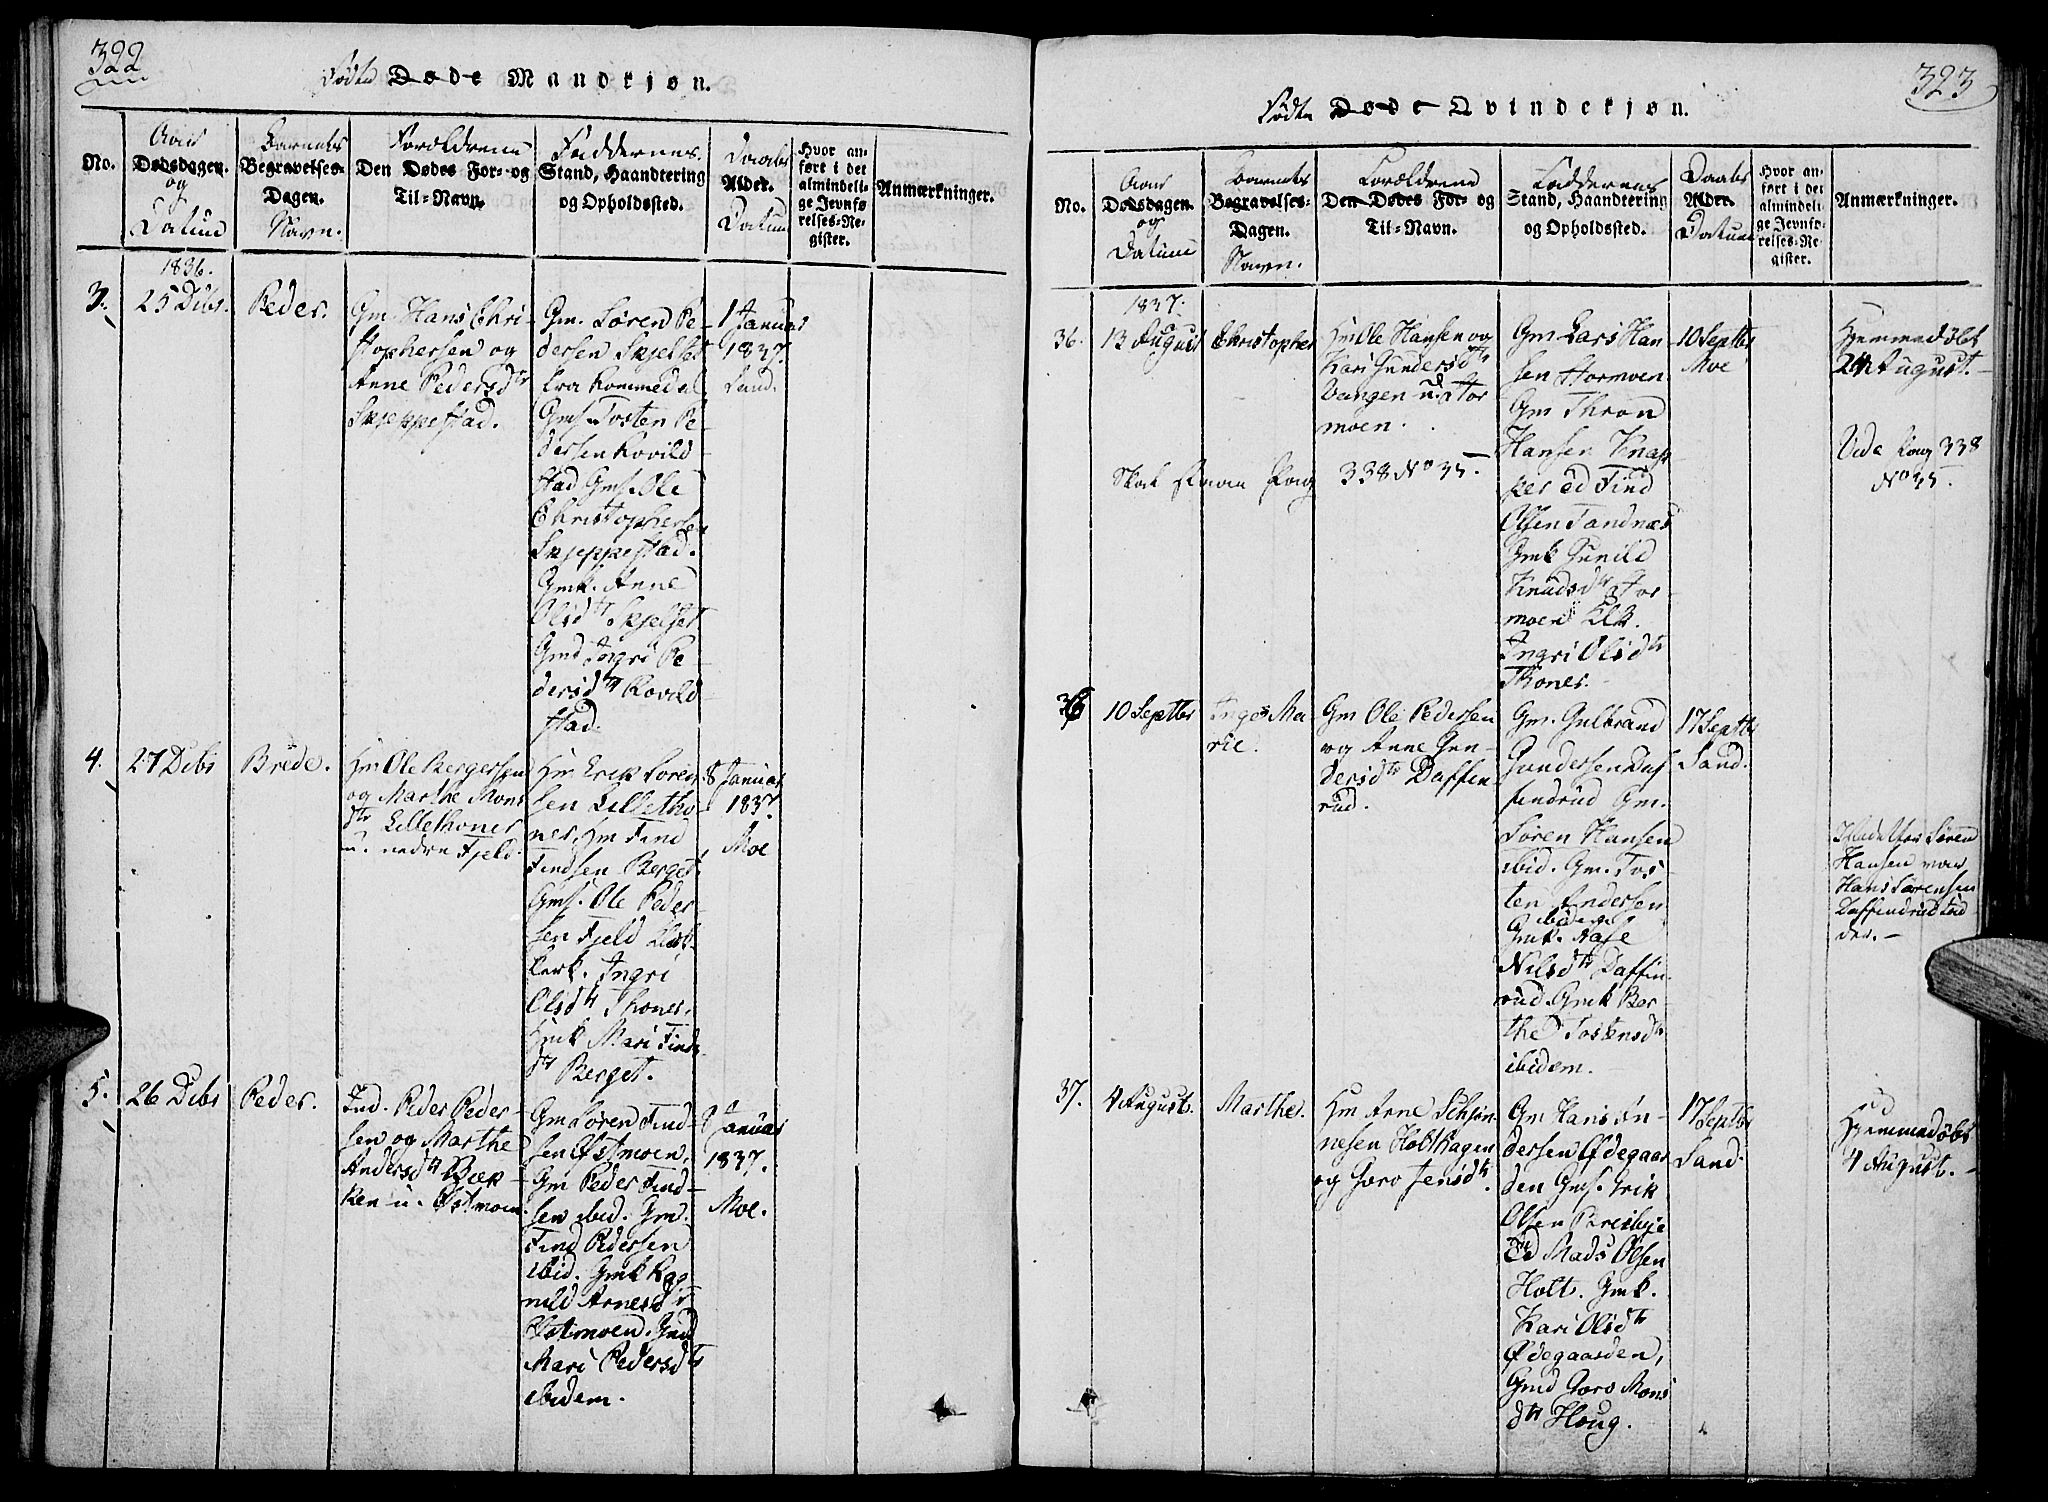 322
Fødte Døde Mandkjøn.
No.
Aar
Dødsdagen.
og
Datum
Barnets
Begravelses-
Dagen.
Navn.
Forældrene
Den Dødes For- og
Til-Navn.
Faddernes
Stand, Haandtering
og Opholdssted.
Daabs
Alder.
Datum
Hvor an-
ført i det
almindeli-
ge Jevnfø-
relses-Re-
gister.
Anmærkninger.
3.
1836.
25 Dcbr.
Peder.
Gm. Hans Chri-
stophersen og
Anne Pedersdtr
Skjeppestad.
Gm. Søren Pe-
dersen Skjelset
Gms. Tosten Pe-
dersen Rovild-
stad Gms. Ole
Christophersen
Skjeppestad.
Gmk. Anne
Olsdtr Skjelset
Gmd Ingri Pe-
dersdtr Rovild
stad.
1 Januar
1837.
Sand.
4.
27 Dcbr
Brede.
Hm Ole Bergersen
og Marthe Mons
dtr Lillethoner
u. nedre Fjeld.
Hm Erik Lored-
sen Lilletho-
ner. Hm Find
Findsen Berget.
Gms. Ole Peder-
sen Fjeld
Ingri
Olsdtr Thoner.
Hmk Mari Finds
dtr Berget.
8 Januar
1837.
Moe
5.
26 Dcbr
Peder.
Ind. Peder Peder-
sen og Marthe
Andersdtr Bæk-
ken u. Østmoen
Gm Søren Find-
sen Østmoen.
Gm Peder Find-
sen ibid. Gm.
Find Pedersen
ibid. Gmk Rag
nild Arnesdtr
Østmoen. Gmd
Mari Pedersdtr
ibidem.
8 Januar
1837.
Moe.
323
Fødte Døde Qvindekjøn.
No.
Aar
Dødsdagen.
og
Datum
Barnets
Begravelses-
Dagen.
Navn.
Forældrene
Den Dødes For- og
Til-Navn.
Faddernes
Stand, Haandtering
og Opholdssted.
Daabs
Alder.
Datum
Hvor an-
ført i det
almindeli-
ge Jevnfø-
relses-Re-
gister.
Anmærkninger.
36.
1837.
13 August
Christopher
Hm Ole Hansen og
Kari Gundersdtr
Vangen u. Stor
moen.
Gm Lars Han-
sen Stormoen
Gm Thron
Hansen Knap
per Find
Olsen Sandnæs
Gmk Gunild
Knudsdtr Stor-
moen
Ingri Olsdtr
Thoner.
10 Septbr
Moe
Hjemmedøbt
24 August.
Vide Pag 338
No 35.
Skal Pag 338 No 35.
36
10 Septbr
Inger Ma
rie.
Gm Ole Pedersen
og Anne Gun-
dersdtr Daffin-
rud.
Gm. Gulbrand
Gundersen Daf
findrud Gm.
Søren Hansen
ibid. Gm. Tos-
ten Andersen
ibidem
Gmk. Aase
Nilsdtr Daffin-
rud. Gmk Ber-
the Tostensdtr
ibidem.
17 Septbr
Sand.
Søren
Hansen var
Hans Sørensen
Daffindrud Fad-
der.
37.
4 August.
Marthe.
Hm Arne Schjon-
nesen Holthagen
og Goro Jensdtr
Gm Hans An-
dersen Ødegaar
den Gms. Erik
Olsen Breibye
Mads Olsen
Holt. Gmk.
Kari Olsdtr
Ødegaarden,
Gmd Goro Mons
dtr Houg.
17 Septbr
Sand.
Hjemmedøbt
4 August.